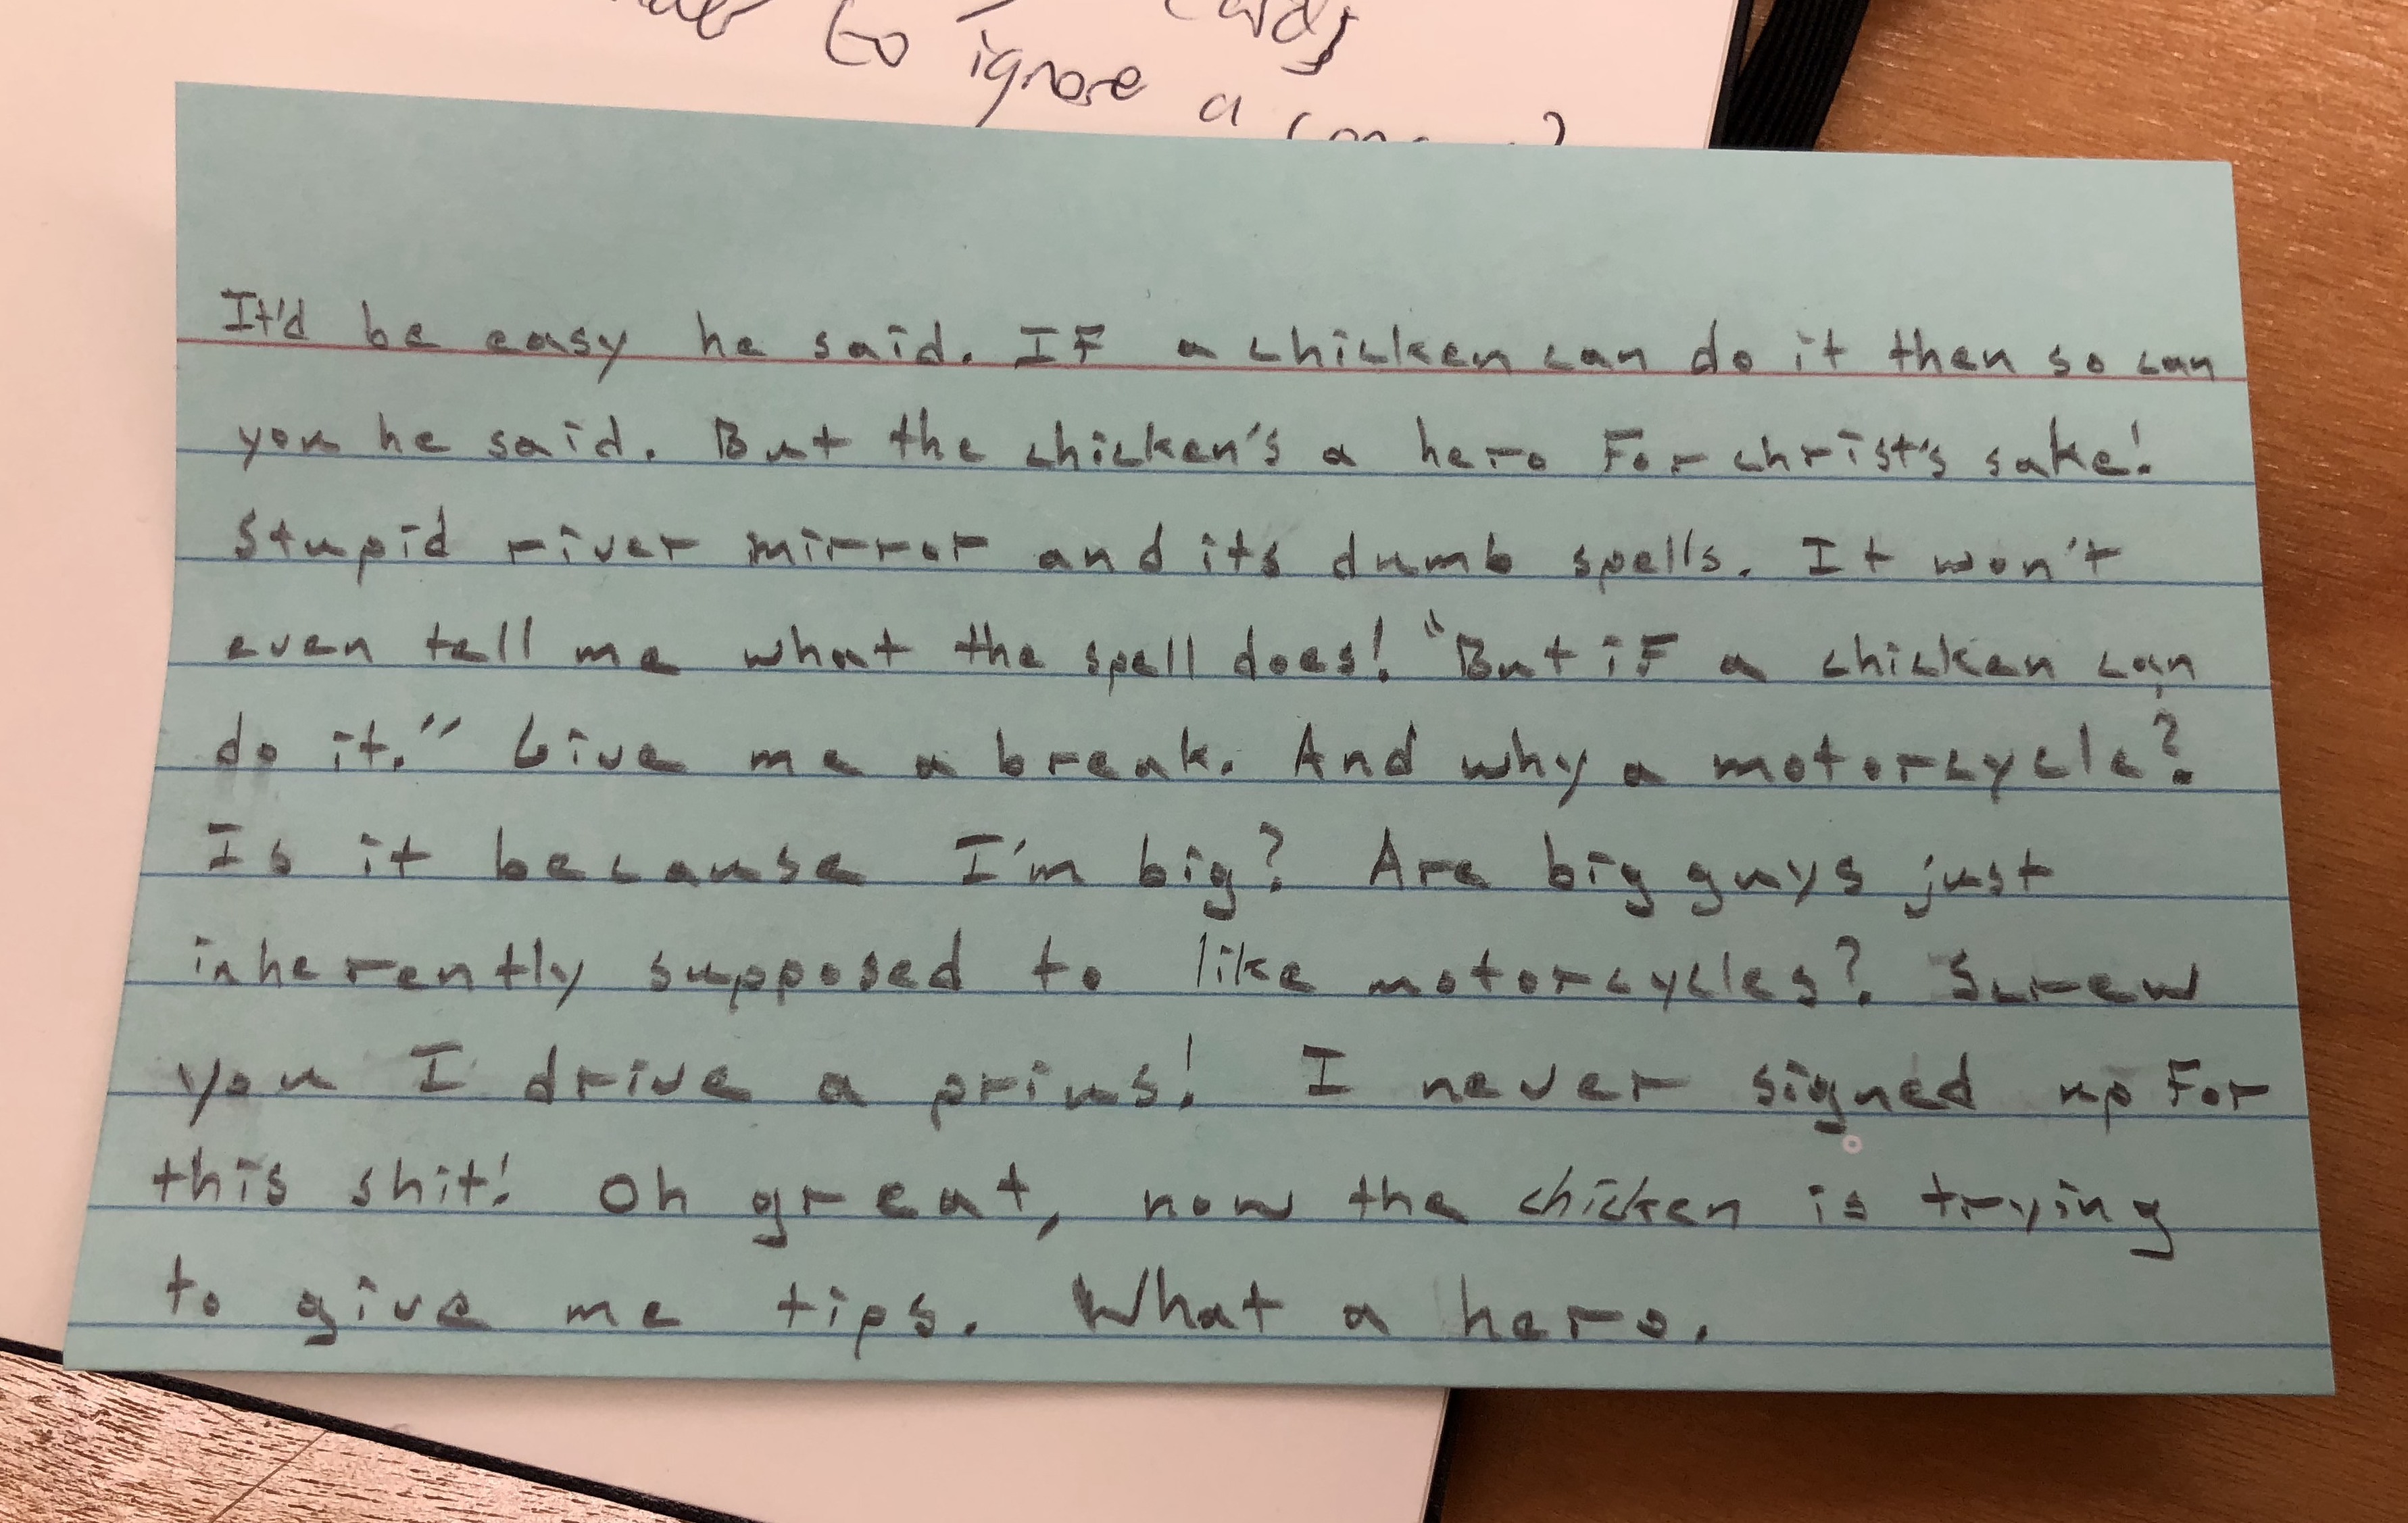 to ignore a
It'd be easy he said. IF a chicken can do it then so can
you he said. But the chicken's a hero For christ's sake!
Stupid river mirror and its dumb spells. It won't
even tell me what the spell does! "But iF a chicken can
do it." Give me a break. And why a motorcycle?
Is it because I'm big? Are big guys just
inherently supposed to like motorcycles? Screw
you I drive a prius! I never signed up For
this shit! Oh great, now the chicken is trying
to give me tips. What a hero.